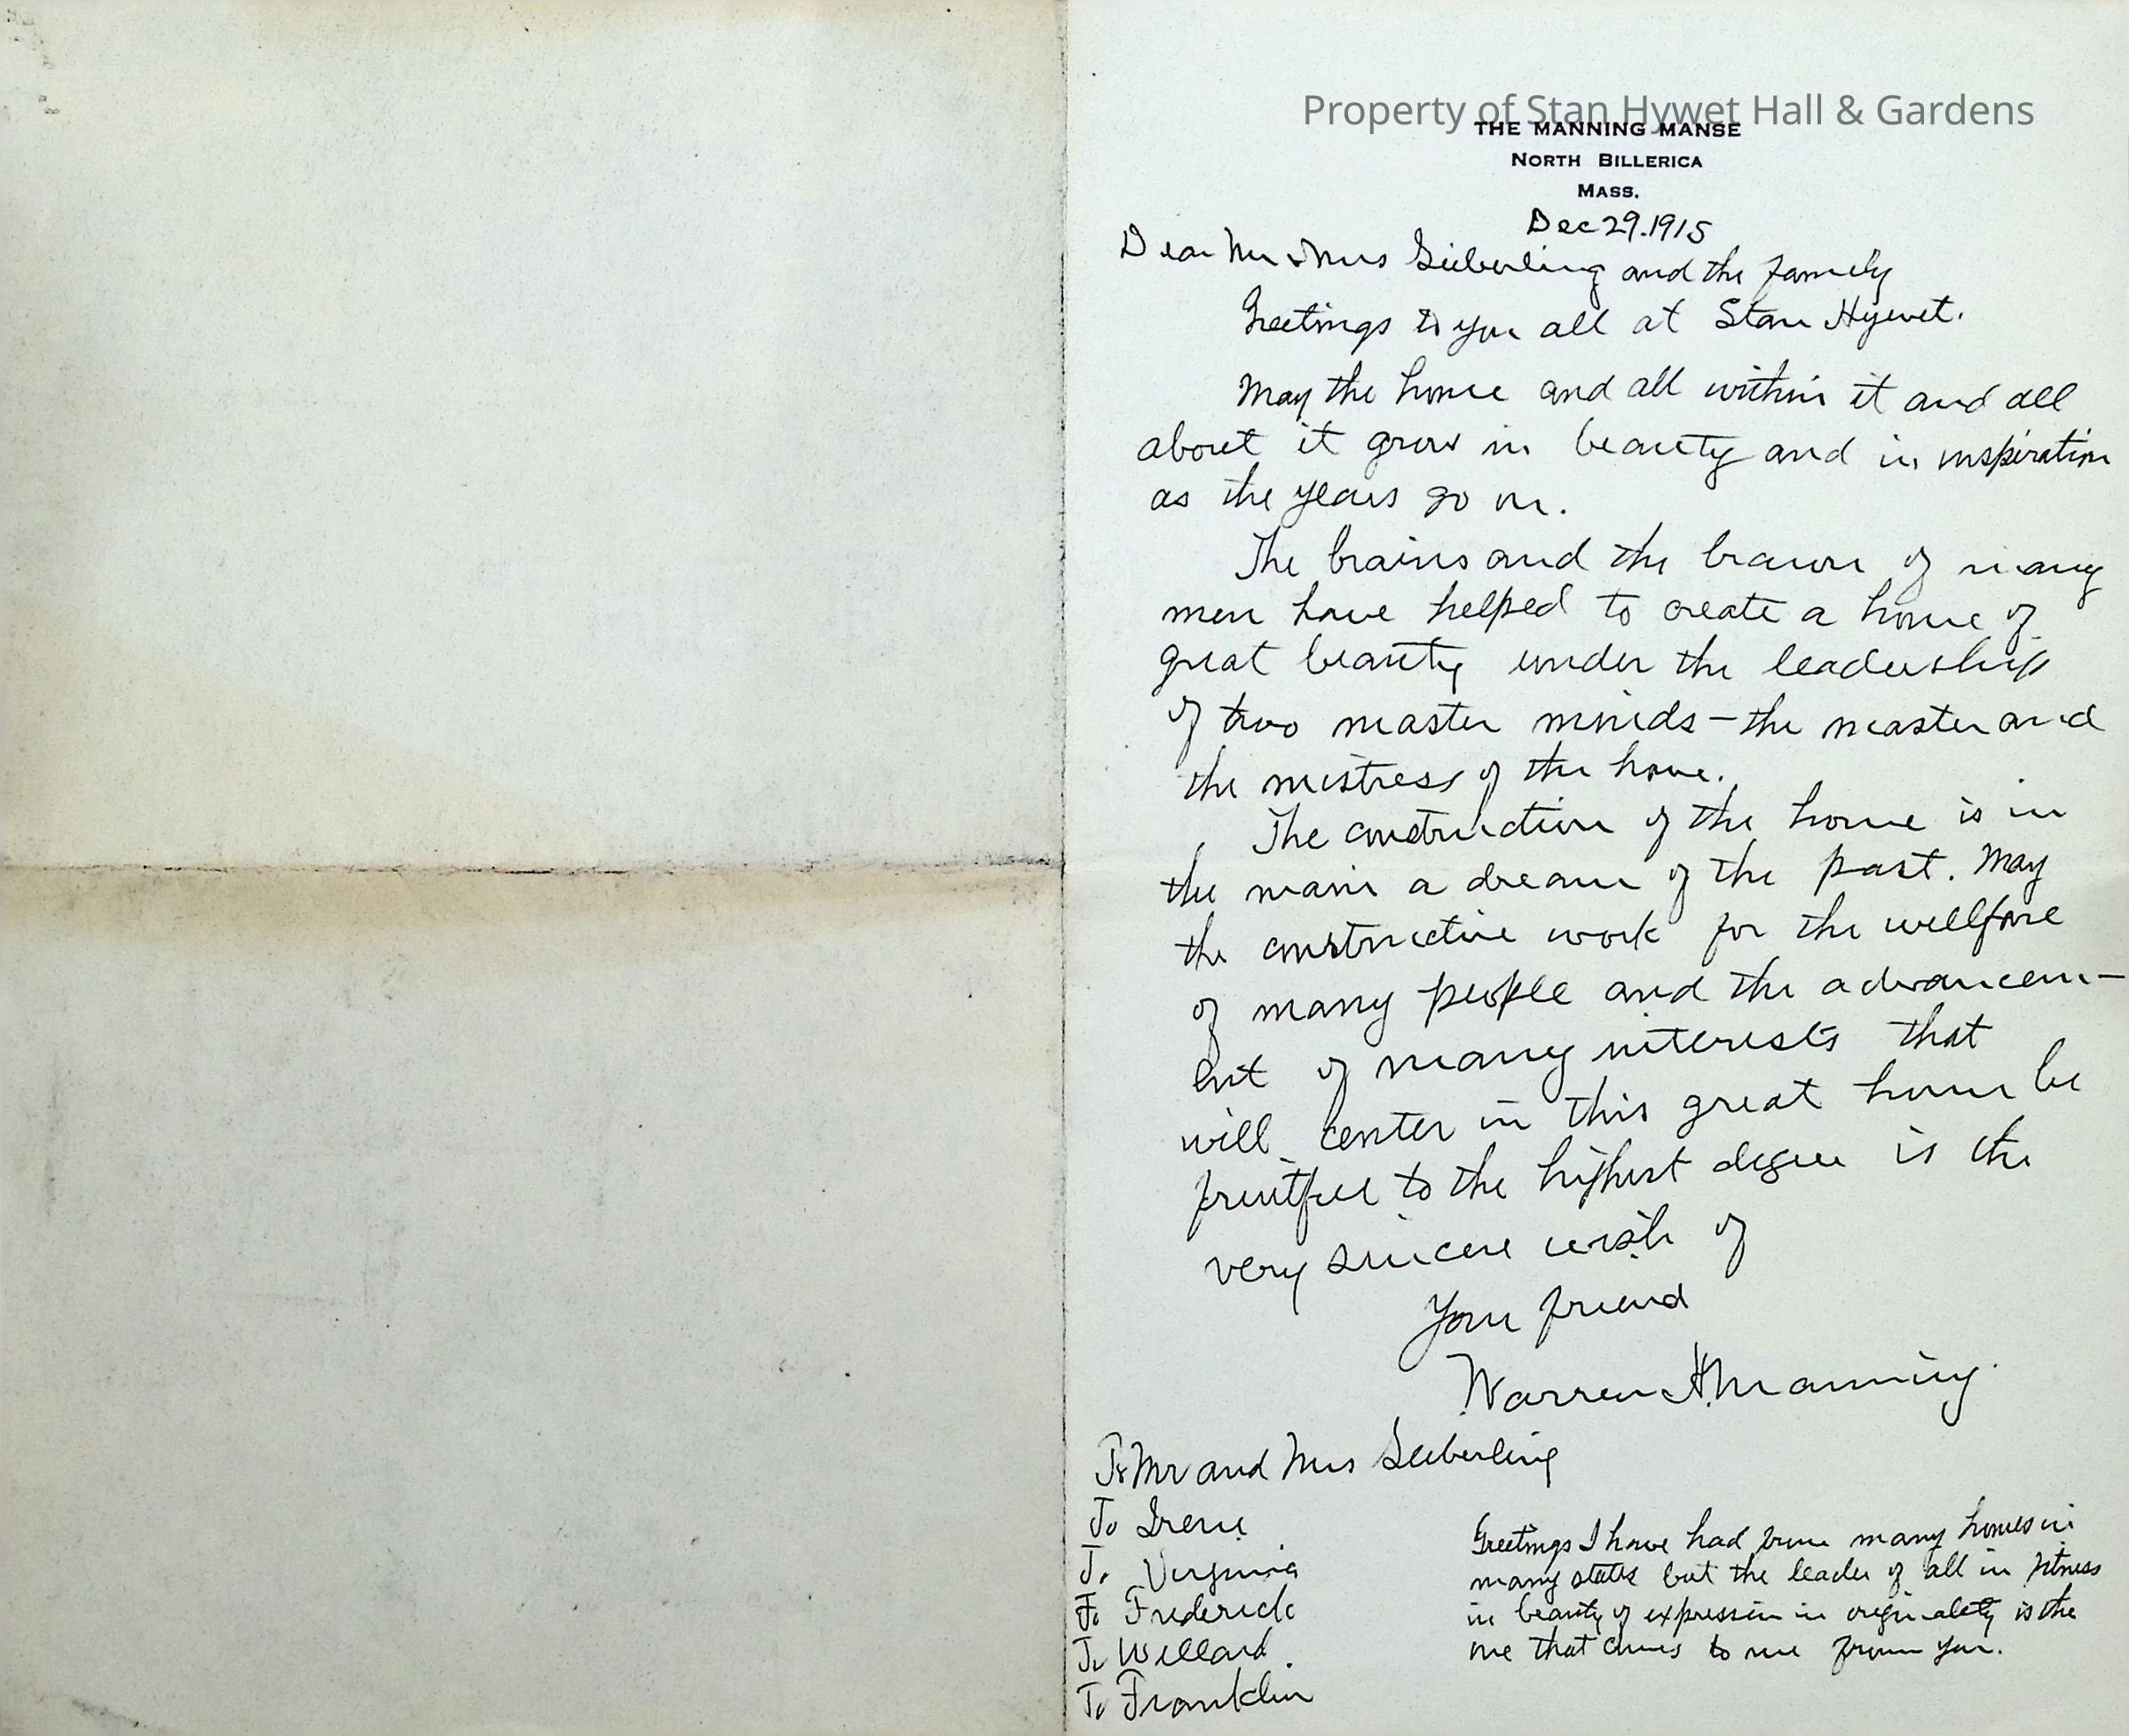 Property of Stan Hywet Hall & Gardens
THE MANNING MANSE
NORTH BILLERICA
MASS.
Dec 29.1915
Dear Mr & Mrs Seiberling and the family
Greetings to you all at Stan Hywet.
May the home and all within it and all
about it grow in beauty and in inspiration
as the years go on.
The brains and the brawn of many
men have helped to create a home of
great beauty under the leadership
of two master minds – the master and
the mistress of the home.
The construction of the home is in
the main a dream of the past. May
the constructive work for the wellfare
of many people and the advancem-
ent of many interests that
will center in this great home be
fruitful to the highest degree is the
very sincere wish of
Your friend
Warren H. Manning.
To Mr and Mrs Seiberling
To Irene
To Virginia
To Frederick
To Willard.
To Franklin
Greetings I have had from many homes in
many states but the leader of all in fitness
in beauty of expression in originality is the
one that comes to me from you.